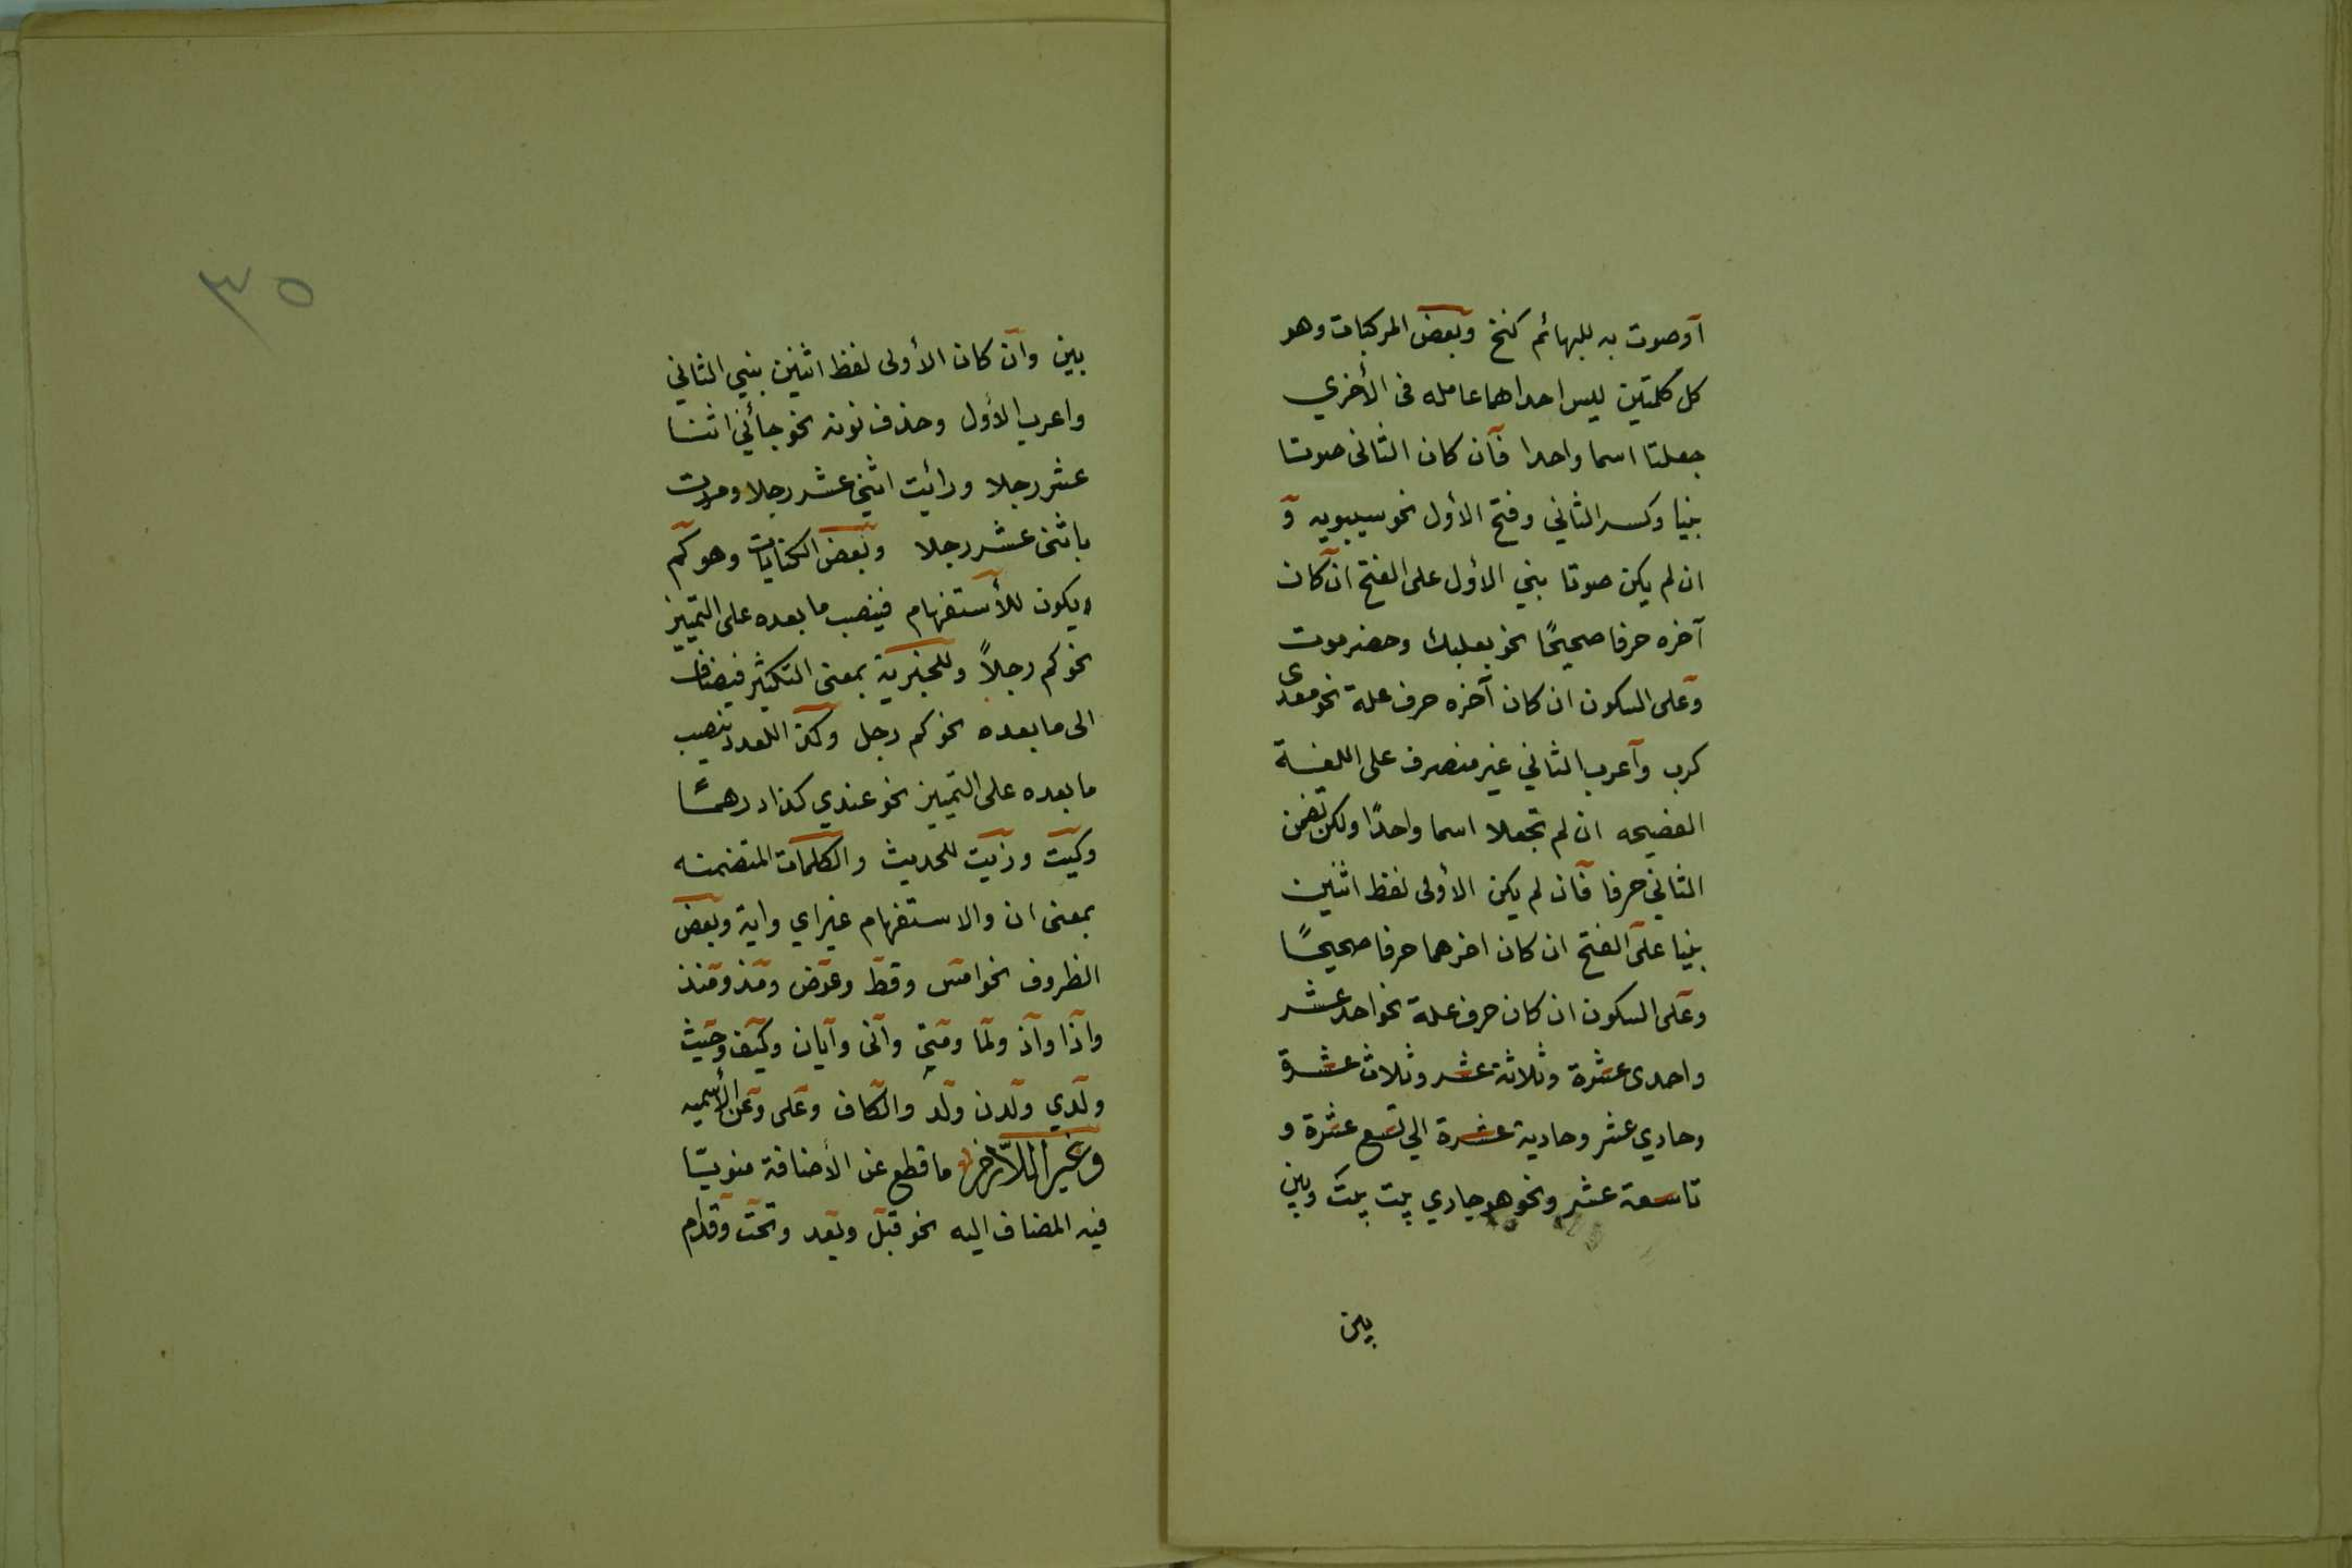 أو صوت به للبهائم كنخ وبعض المركبات وهو
كل كلمتين ليس احداهما عامله فى الأخري
جعلتا اسما واحدا فان كان الثانى صوتا
بنيا وكسر الثاني وفتح الأول نحو سيبويه و
ان لم يكن صوتا بني الأول على الفتح ان كان
آخره حرفا صحيحًا نحو بعلبك وحضرموت
وعلى السكون ان كان آخره حرف علة نحو معدى
كرب وأعرب الثاني غير منصرف على اللغة
الفصيحه ان لم تجعلا اسما واحدًا ولكن تضمن
الثاني حرفا فان لم يكن الأولى لفظ اثنين
بنيا على الفتح ان كان اخرهما حرفا صحيحًا
وعلى السكون ان كان حرف علة نحو احد عشر
واحدى عشرة وثلاثة عشر وثلاث عشرة
وحادي عشر وحادية عشرة الي تسع عشرة و
تاسعة عشر ونحو هو جاري بيت بيت وبين
بين
٣٥
بين وان كان الأولى لفظ اثنين بني الثاني
واعرب الأول وحذف نونه نحو جائني اثنا
عشر رجلا ورائيت اثني عشر رجلا ومررت
باثنى عشر رجلا وبعض الكنايات وهو كم
ويكون للأستفهام فينصب ما بعده على التمييز
نحو كم رجلاً وللخبرية بمعنى التكثير فيضاف
الى ما بعده نحو كم رجل وكذا للعدد ينصب
ما بعده على التمييز نحو عندي كذا درهمًا
وكيت وذيت للحديث والكلمات المتضمنه
بمعنى ان والاستفهام غير اي واية وبعض
الظروف نحو امس وقط وعوض ومذ ومنذ
واذا واذ ولما ومتى وانى وايان وكيف وحيث
ولدي ولدن ولد والكاف وعلى وعن الأسميه
وغير اللازم ما قطع عن الأضافة منويّا
فيه المضاف اليه نحو قبل وبعد وتحت وقدام